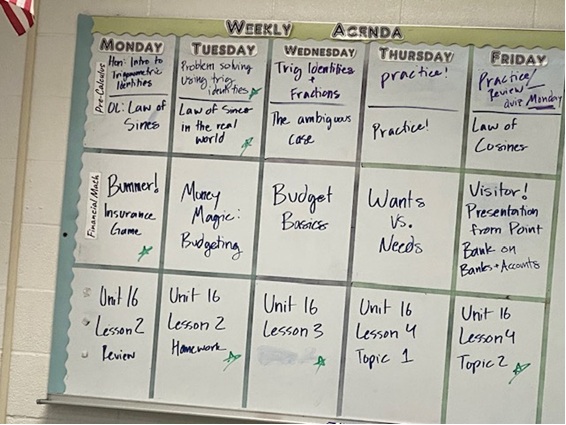 WEEKLY AGENDA
MONDAY
TUESDAY
WEDNESDAY
THURSDAY
FRIDAY
Pre-Calculus
Hon: Intro to
Trigonometric
Identities
OL: Law of
Sines
Problem solving
Using trig
identities
Law of Sines
in the real
world
Trig Identities
+
Fractions
The ambiguous
case
practice!
Practice!
Practice/
Review
Quiz Monday
Law of
Cosines
Financial Math
Bummer!
Insurance
Game
Money
Magic:
Budgeting
Budget
Basics
Wants
vs.
Needs
Visitor!
Presentation
from Point
Bank on
Banks + Accounts
Unit 16
Lesson 2
Review
Unit 16
Lesson 2
Homework
Unit 16
Lesson 3
Unit 16
Lesson 4
Topic 1
Unit 16
Lesson 4
Topic 2